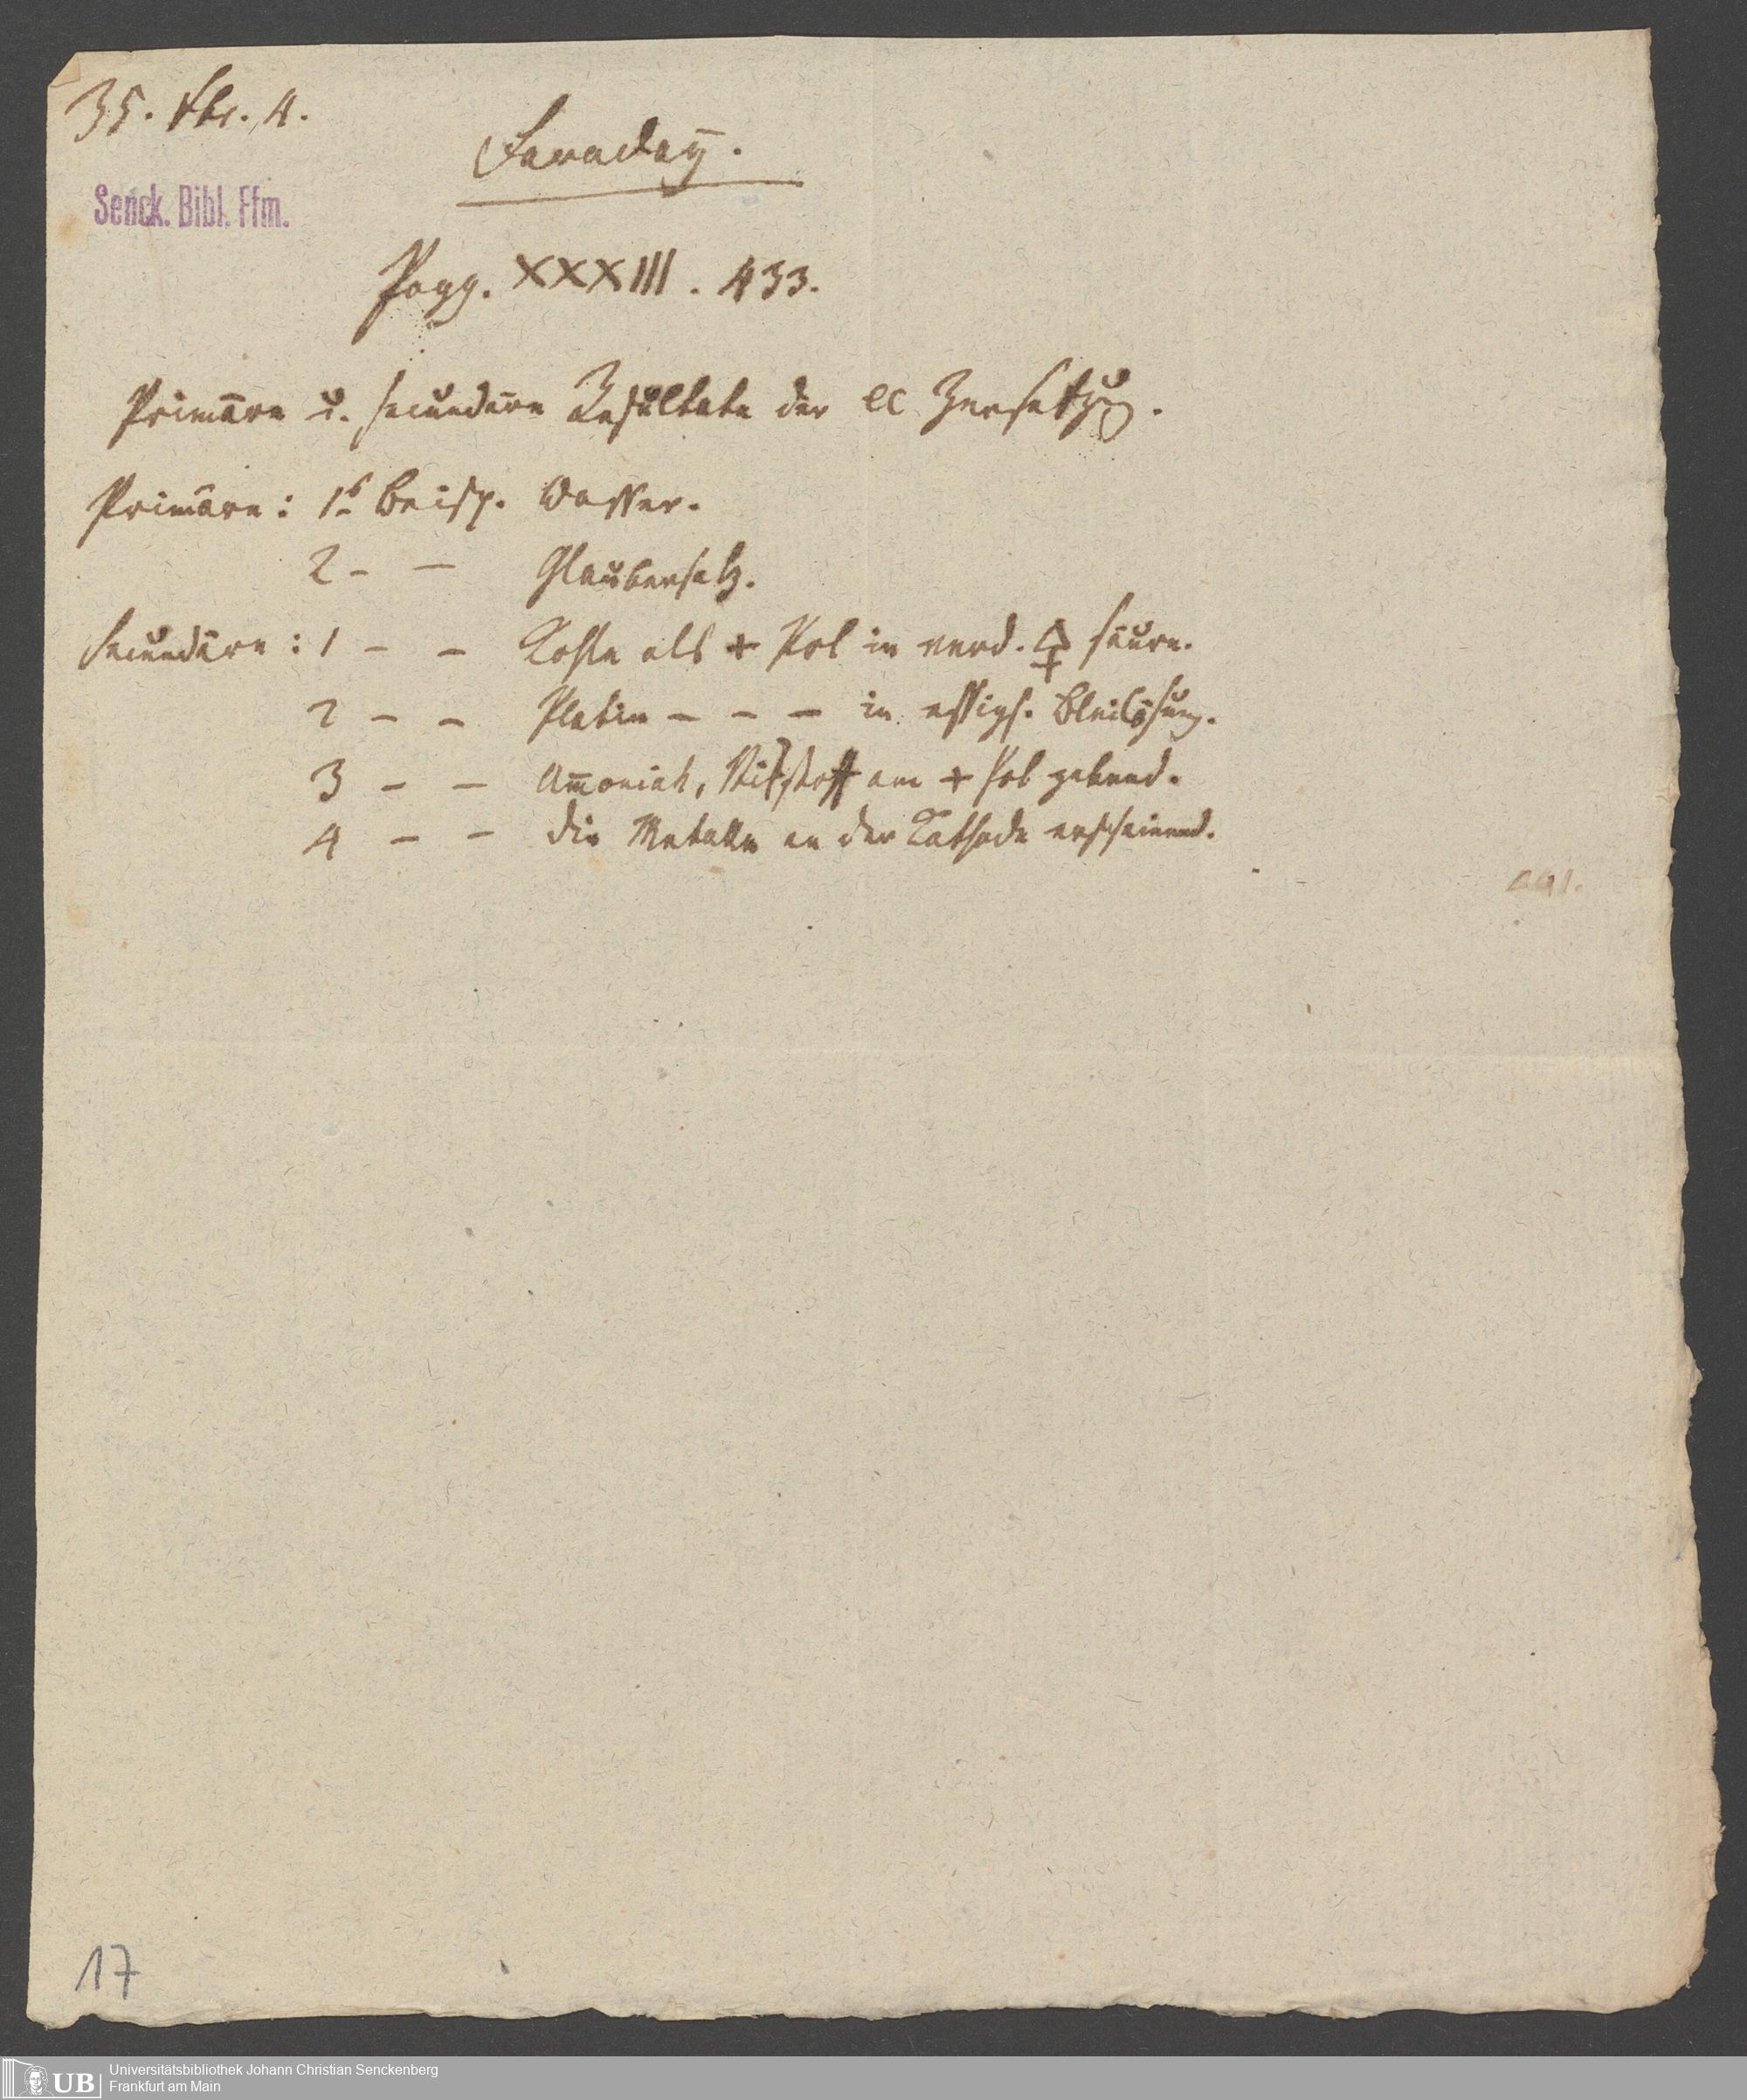 35. Fbr. 4.
Faraday.
Senck. Bibl. Ffm.
Pogg. XXXIII. 433.
Primäre u. secundäre Resultate der el Zersetzug.
Primäre: 1s Beisp. Wasser.
2 - - Glaubersalz.
Secundäre: 1 - - Kohle als + Pol in verd. 🜍 säure.
2 - - Platin - - - in essigs. Bleilösung.
3 - - Am̄oniak, Stikstoff am + Pol gebend.
4 - - die Metalle an der Kathode erscheinend.
17
UB Universitätsbibliothek Johann Christian Senckenberg
Frankfurt am Main